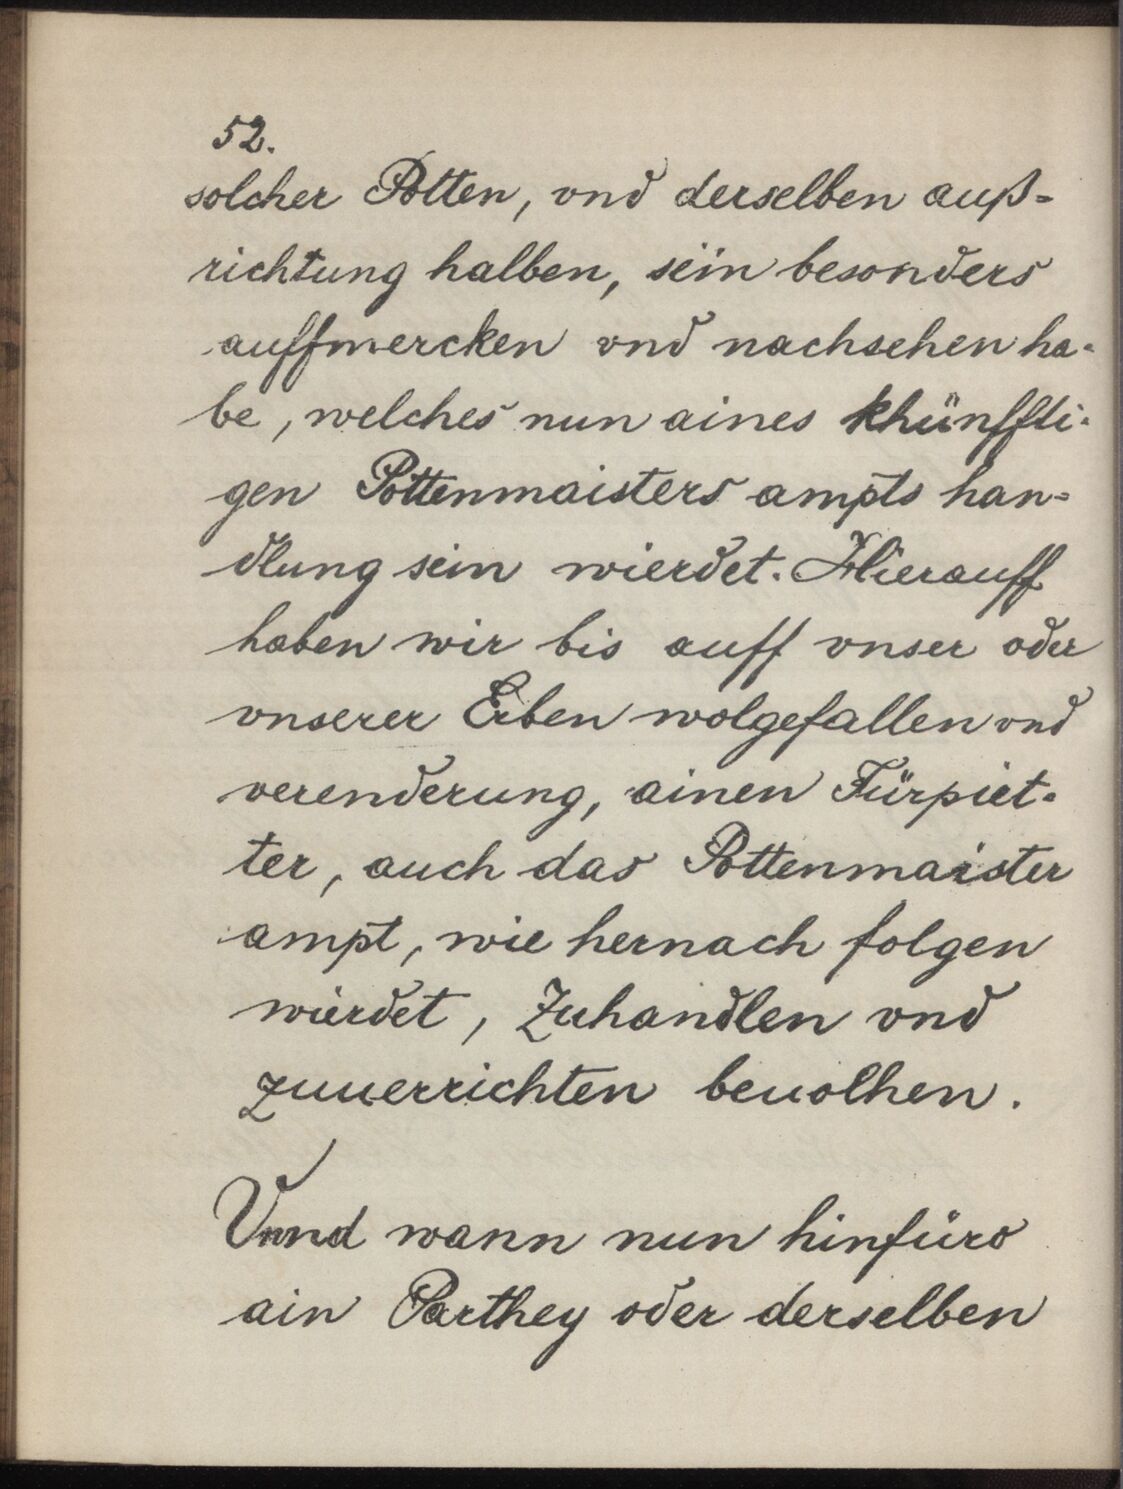 52.
solcher Potten, vnd derselben auß-
richtung halben, sein besonders
auffmercken vnd nachsehen ha-
be, welches nun aines khünffti-
gen Pottenmaisters ampts han-
dlung sein wierdet. Hierauff
haben wir bis auff vnser oder
vnserer Erben wolgefallen vnd
verenderung, ainen Fürpiet-
ter, auch das Pottenmaister
ampt, wie hernach folgen
wierdet, Zuhandlen vnd
zuuerrichten beuolhen.
Vnnd wann nun hinfüro
ain Parthey oder derselben